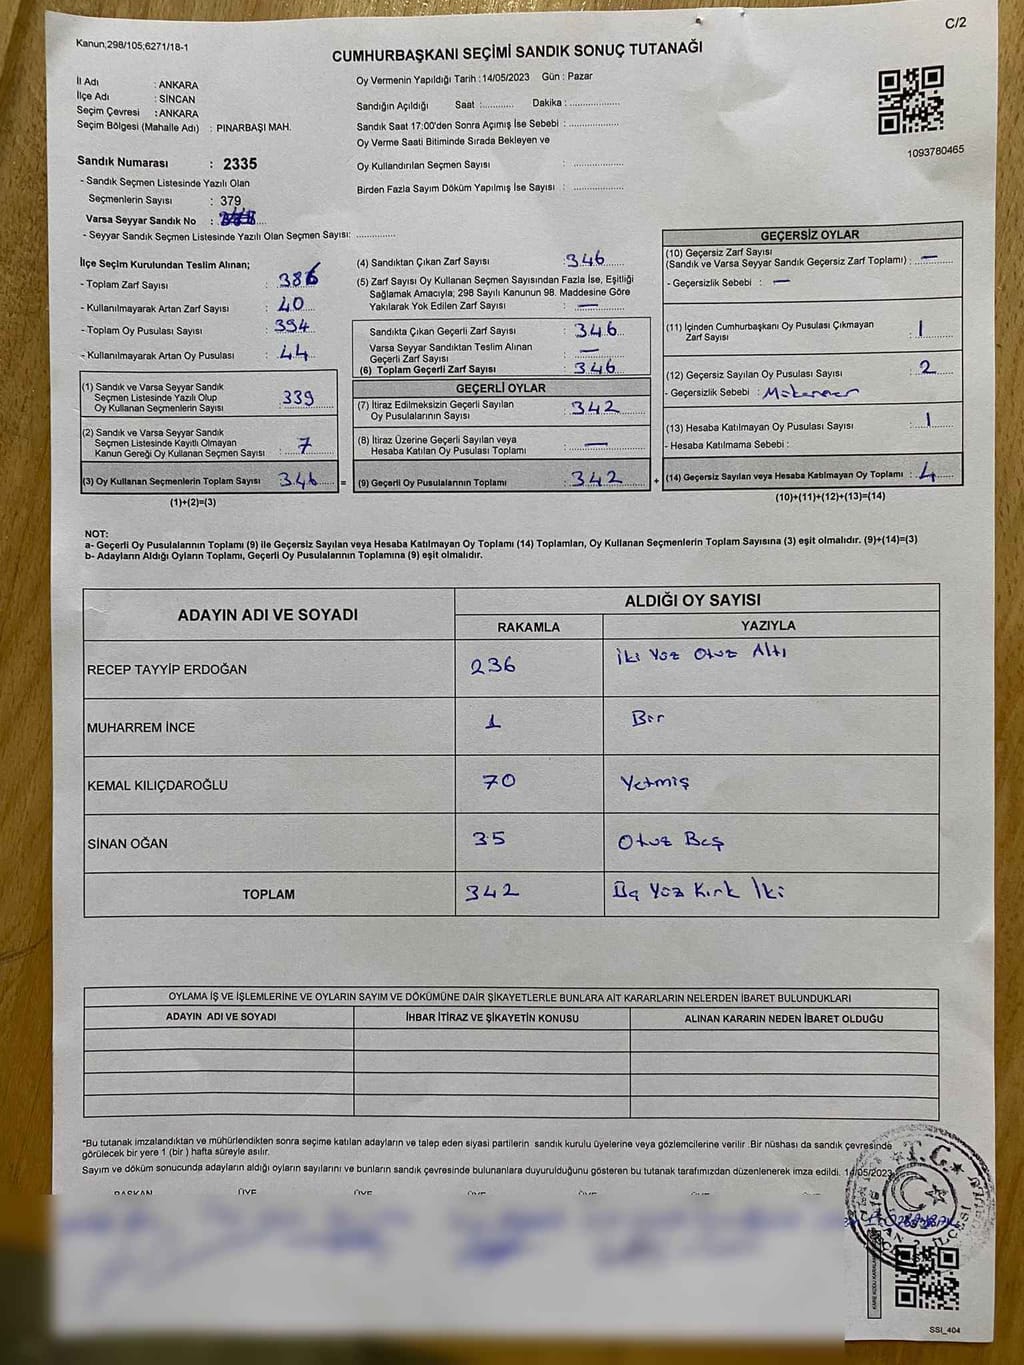 C/2
Kanun,298/105;6271/18-1
CUMHURBAŞKANI SEÇİMİ SANDIK SONUÇ TUTANAĞI
İl Adı : ANKARA
İlçe Adı : SİNCAN
Seçim Çevresi : ANKARA
Seçim Bölgesi (Mahalle Adı) : PINARBAŞI MAH.
Oy Vermenin Yapıldığı Tarih :14/05/2023 Gün : Pazar
Sandığın Açıldığı Saat :........... Dakika : ....................
Sandık Saat 17:00'den Sonra Açımış İse Sebebi : ....................
Oy Verme Saati Bitiminde Sırada Bekleyen ve
Oy Kullandırılan Seçmen Sayısı : ....................
Birden Fazla Sayım Döküm Yapılmış İse Sayısı : ....................
1093780465
Sandık Numarası : 2335
- Sandık Seçmen Listesinde Yazılı Olan
Seçmenlerin Sayısı : 379
Varsa Seyyar Sandık No :
- Seyyar Sandık Seçmen Listesinde Yazılı Olan Seçmen Sayısı: ..............
İlçe Seçim Kurulundan Teslim Alınan;
- Toplam Zarf Sayısı : 386
- Kullanılmayarak Artan Zarf Sayısı : 40
- Toplam Oy Pusulası Sayısı : 394
- Kullanılmayarak Artan Oy Pusulası : 44
(1) Sandık ve Varsa Seyyar Sandık
Seçmen Listesinde Yazılı Olup
Oy Kullanan Seçmenlerin Sayısı : 339
(2) Sandık ve Varsa Seyyar Sandık
Seçmen Listesinde Kayıtlı Olmayan
Kanun Gereği Oy Kullanan Seçmen Sayısı : 7
(3) Oy Kullanan Seçmenlerin Toplam Sayısı : 346 =
(1)+(2)=(3)
(4) Sandıktan Çıkan Zarf Sayısı : 346
(5) Zarf Sayısı Oy Kullanan Seçmen Sayısından Fazla İse, Eşitliği
Sağlamak Amacıyla; 298 Sayılı Kanunun 98. Maddesine Göre
Yakılarak Yok Edilen Zarf Sayısı : —
Sandıkta Çıkan Geçerli Zarf Sayısı : 346
Varsa Seyyar Sandıktan Teslim Alınan
Geçerli Zarf Sayısı : —
(6) Toplam Geçerli Zarf Sayısı : 346
GEÇERLİ OYLAR
(7) İtiraz Edilmeksizin Geçerli Sayılan
Oy Pusulalarının Sayısı : 342
(8) İtiraz Üzerine Geçerli Sayılan veya
Hesaba Katılan Oy Pusulası Toplamı : —
(9) Geçerli Oy Pusulalarının Toplamı : 342 +
GEÇERSİZ OYLAR
(10) Geçersiz Zarf Sayısı
(Sandık ve Varsa Seyyar Sandık Geçersiz Zarf Toplamı) : —
- Geçersizlik Sebebi : —
(11) İçinden Cumhurbaşkanı Oy Pusulası Çıkmayan
Zarf Sayısı : 1
(12) Geçersiz Sayılan Oy Pusulası Sayısı : 2
- Geçersizlik Sebebi :
(13) Hesaba Katılmayan Oy Pusulası Sayısı : 1
- Hesaba Katılmama Sebebi :
(14) Geçersiz Sayılan veya Hesaba Katılmayan Oy Toplamı : 4
(10)+(11)+(12)+(13)=(14)
NOT:
a- Geçerli Oy Pusulalarının Toplamı (9) ile Geçersiz Sayılan veya Hesaba Katılmayan Oy Toplamı (14) Toplamları, Oy Kullanan Seçmenlerin Toplam Sayısına (3) eşit olmalıdır. (9)+(14)=(3)
b- Adayların Aldığı Oyların Toplamı, Geçerli Oy Pusulalarının Toplamına (9) eşit olmalıdır.
ADAYIN ADI VE SOYADI ALDIĞI OY SAYISI
RAKAMLA YAZIYLA
RECEP TAYYİP ERDOĞAN 236 İki Yüz Otuz Altı
MUHARREM İNCE 1 Bir
KEMAL KILIÇDAROĞLU 70 Yetmiş
SİNAN OĞAN 35 Otuz Beş
TOPLAM 342 Üç Yüz Kırk İki
OYLAMA İŞ VE İŞLEMLERİNE VE OYLARIN SAYIM VE DÖKÜMÜNE DAİR ŞİKAYETLERLE BUNLARA AİT KARARLARIN NELERDEN İBARET BULUNDUKLARI
ADAYIN ADI VE SOYADI İHBAR İTİRAZ VE ŞİKAYETİN KONUSU ALINAN KARARIN NEDEN İBARET OLDUĞU
*Bu tutanak imzalandıktan ve mühürlendikten sonra seçime katılan adayların ve talep eden siyasi partilerin sandık kurulu üyelerine veya gözlemcilerine verilir .Bir nüshası da sandık çevresinde
görülecek bir yere 1 (bir ) hafta süreyle asılır.
Sayım ve döküm sonucunda adayların aldığı oyların sayılarını ve bunların sandık çevresinde bulunanlara duyurulduğunu gösteren bu tutanak tarafımızdan düzenlenerek imza edildi. 14/05/2023
BAŞKAN ÜYE ÜYE ÜYE ÜYE ÜYE ÜYE
T.C.
SSI_404